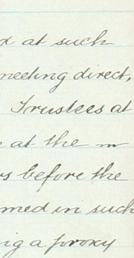 at such
meeting direct,
Trustees at
at the m
before the
med in such
ig a proxy